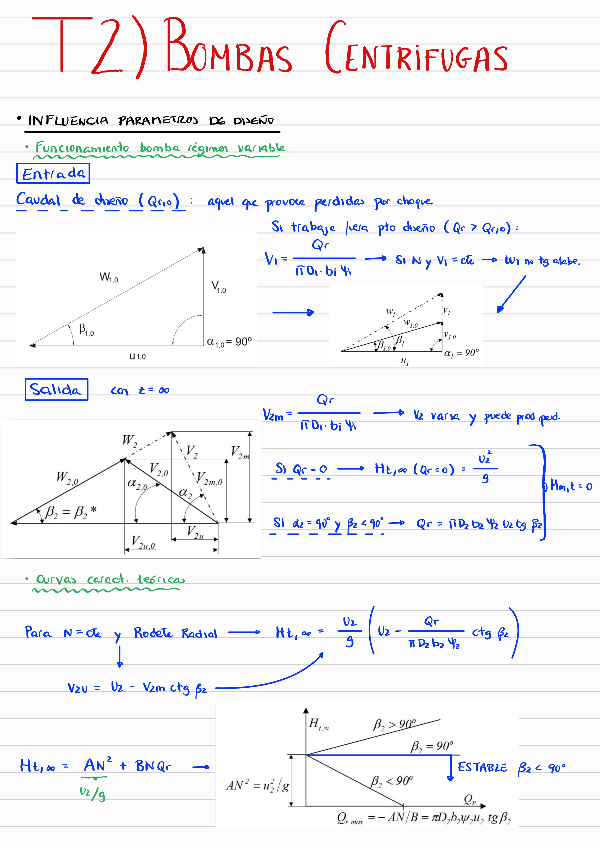 T2) BOMBAS CENTRÍFUGAS
• INFLUENCIA PARAMETROS DE DISEÑO
• Funcionamiento bomba régimen variable
Entrada
Caudal de diseño (Qr,0) : aquel que provoca perdidas por choque
Si trabaja fuera pto diseño (Qr > Qr,0) :
V1 = Qr / π D1 · b1 ψ1 → Si N y V1 = cte → W1 no tg alabe.
W1,0
V1,0
β1,0
α1,0 = 90º
u1,0
w1
w1,0
v1
v1,0
β1,0
β1
u1
α1 = 90º
Salida con z = ∞
V2m = Qr / π D1 · b1 ψ1 → V2 varia y puede prod perd.
Si Qr = 0 → Ht,∞ (Qr=0) = U2² / g
Hm,t = 0
Si α2 = 90º y β2 < 90º → Qr = π D2 b2 ψ2 U2 tg β2
W2
W2,0
V2
V2,0
V2m
V2m,0
α2,0
α2
β2 = β2*
V2u
V2u,0
• Curvas caract. teóricas
Para N = cte y Rodete Radial → Ht,∞ = U2 / g ( U2 - Qr / π D2 b2 ψ2 ctg β2 )
V2u = U2 - V2m ctg β2
Ht,∞ = AN² + BNQr →
U2/g
Ht,∞
β2 > 90º
β2 = 90º
β2 < 90º
AN² = u2²/g
Qr
Qr max = − AN/B = πD2b2ψ2u2 tgβ2
ESTABLE β2 < 90º